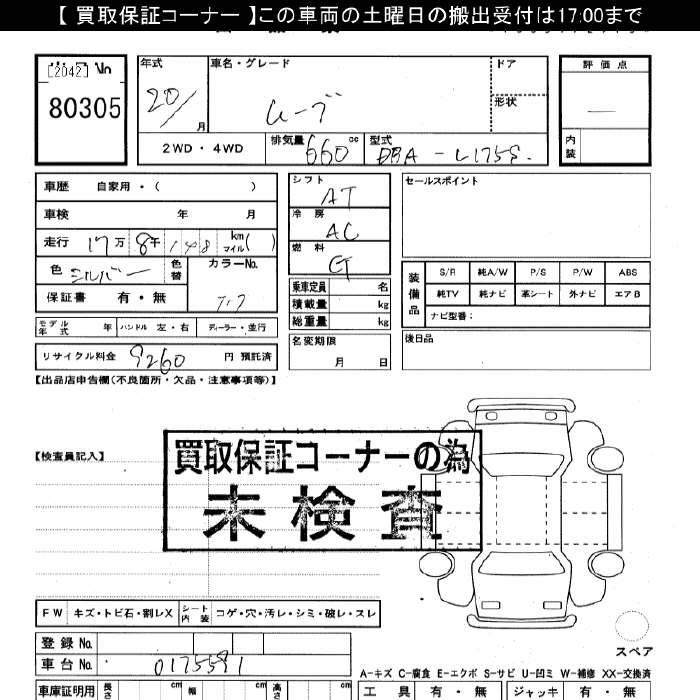 【 買取保証コーナー 】この車両の土曜日の搬出受付は17:00まで
[2042] No
80305
年式 車名・グレード ドア 評価点
20/ 月 ムーブ 形状
2WD・4WD 排気量 660 cc 型式 DBA - L175S. 内装
車歴 自家用・( )
車検 年 月
走行 17万 8千 148 km マイル( )
色 シルバー 色替 カラーNo.
保証書 有・無
モデル年式 年 ハンドル 左・右 ディーラー・並行
リサイクル料金 9260 円 預託済
シフト AT
冷房 AC
燃料 G
乗車定員 名
積載量 kg
総重量 kg
名変期限
月 日
セールスポイント
装備品 S/R 純A/W P/S P/W ABS
純TV 純ナビ 革シート 外ナビ エアB
ナビ型番:
後日品
【出品店申告欄(不良箇所・欠品・注意事項等)】
【検査員記入】
買取保証コーナーの為
未検査
FW キズ・トビ石・割レX シート内装 コゲ・穴・汚レ・シミ・破レ・スレ
登録 No.
車台 No. 0175591
スペア
A-キズ C-腐食 E-エクボ S-サビ U-凹ミ W-補修 XX-交換済
車庫証明用 長さ cm 幅 cm 高さ cm 工具 有・無 ジャッキ 有・無